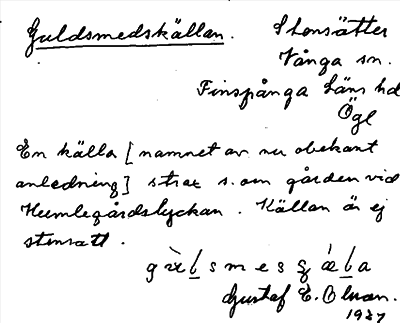 Guldsmedskällan. Stensätter
Vånga sn.
Finspånga läns hd
Ögl
En källa [namnet av nu obekant
anledning] strax s. om gården vid
Humlegårdslyckan. Källan är ej
stensatt.
Gustaf E. Olsson.
1927